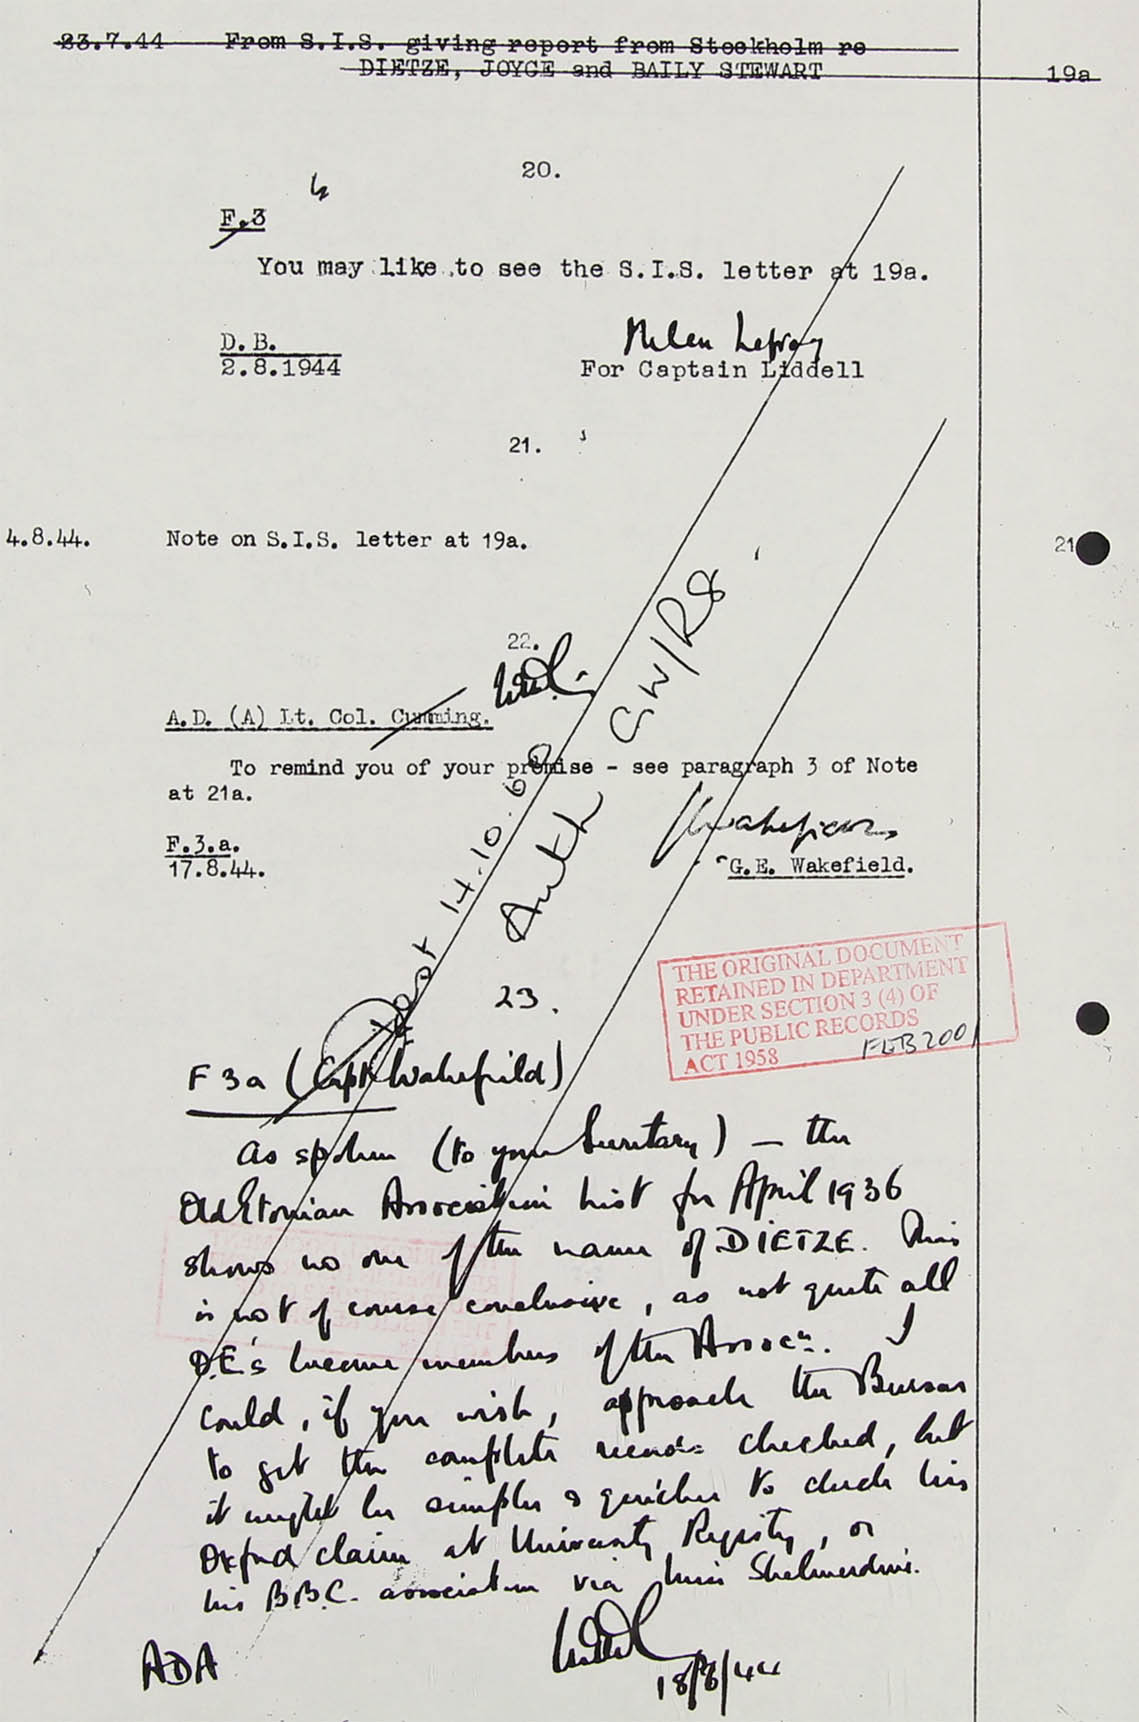 23.7.44 From S.I.S. giving report from Stockholm re
DIETZE, JOYCE and BAILY STEWART 19a
20.
F.3
You may like to see the S.I.S. letter at 19a.
Helen Lefroy
D.B.
2.8.1944
For Captain Liddell
21.
4.8.44. Note on S.I.S. letter at 19a. 21
22.
A.D. (A) Lt. Col. Cumming.
To remind you of your promise - see paragraph 3 of Note
at 21a.
F.3.a.
17.8.44.
GWakefield
G.E. Wakefield.
14.10.60
Auth GW/R8
THE ORIGINAL DOCUMENT
RETAINED IN DEPARTMENT
UNDER SECTION 3 (4) OF
THE PUBLIC RECORDS
ACT 1958 FEB 2001
23.
F3a (Capt Wakefield)
As spoken (to your Secretary) — the
Old Etonian Association List for April 1936
shows no one of the name of DIETZE. This
is not of course conclusive, as not quite all
O.E's become members of the Assocn. I
could, if you wish, approach the Bursar
to get the complete records checked, but
it might be simpler & quicker to check his
Oxford claim at University Registry, or
his B.B.C. association via Miss Shelmerdine.
ADA
18/8/44